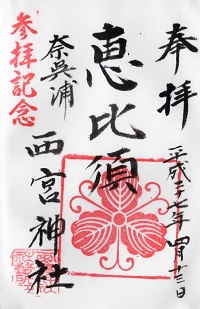 奉拝
平成二十七年四月十三日
恵比須
奈呉浦
西宮神社
参拝記念